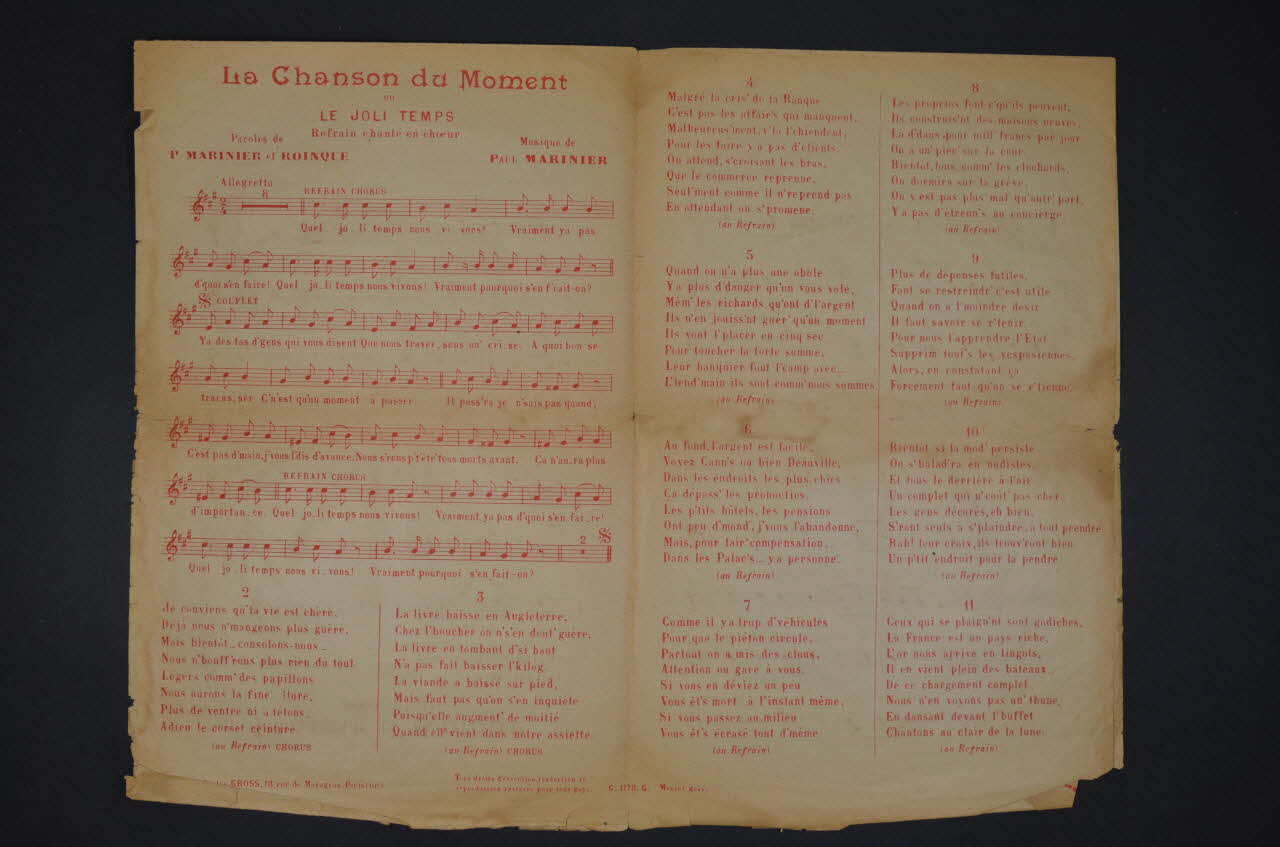 La Chanson du Moment
ou
LE JOLI TEMPS
Refrain chanté en chœur
Paroles de
P. MARINIER et ROINQUE
Musique de
PAUL MARINIER
Allegretto
8
REFRAIN CHORUS
Quel jo_li temps nous vi_vons! Vraiment ya pas
d'quoi s'en faire! Quel jo_li temps nous vivons! Vraiment pourquoi s'en f'rait-on?
COUPLET
Ya des tas d'gens qui vous disent Que nous traver_sons un' cri_se. A quoi bon se
tracas_ser C'n'est qu'un moment a passer Il pass'ra je n'sais pas quand,
C'est pas d'main, j'vous l'dis d'avance, Nous s'rons p't'êt' tous morts avant, Ca n'au_ra plus
REFRAIN CHORUS
d'importan_ce. Quel jo_li temps nous vivons! Vraiment ya pas d'quoi s'en fai_re!
2
Quel jo_li temps nous vi_vons! Vraiment pourquoi s'en fait-on?
2
Je conviens qu'la vie est chère,
Déjà nous n'mangeons plus guère,
Mais bientôt_ consolons-nous_
Nous n'bouff'rons plus rien du tout
Légers comm' des papillons
Nous aurons la fine
Plus de ventre ni d'tétons
Adieu le corset ceinture
(au Refrain) CHORUS
3
La livre baisse en Angleterre,
Chez l'boucher on n's'en dout' guère,
La livre en tombant d'si haut
N'a pas fait baisser l'kilog
La viande a baissé sur pied,
Mais faut pas qu'on s'en inquiète
Puisqu'elle augment' de moitié
Quand ell' vient dans notre assiette
(au Refrain) CHORUS
4
Malgré la cris' de la Banque
C'est pas les affair's qui manquent,
Malheureus'ment, v'la l'chiendent,
Pour les faire y a pas d'clients.
On attend, s'croisant les bras,
Que le commerce reprenne,
Seul'ment comme il n'reprend pas
En attendant on s'promène.
(au Refrain)
5
Quand on n'a plus une obole
Y a plus d'danger qu'on vous vole,
Mêm' les richards qu'ont d'l'argent
Ils n'en jouiss'nt guèr' qu'un moment
Ils vont l'placer en cinq sec
Pour toucher la forte somme,
Leur banquier fout l'camp avec_
L'lend'main ils sont comm' nous sommes.
(au Refrain)
6
Au fond, l'argent est facile,
Voyez Cann's ou bien Deauville,
Dans les endroits les plus chics
Ca dépass' les pronostics
Les p'tits hôtels, les pensions
Ont peu d'mond', j'vous l'abandonne,
Mais, pour fair' compensation,
Dans les Palac's_ ya personne.
(au Refrain)
7
Comme il ya trop d'véhicules
Pour que le piéton circule,
Partout on a mis des clous,
Attention ou gare à vous.
Si vous en déviez un peu
Vous êt's mort à l'instant même,
Si vous passez au milieu
Vous êt's écrasé tout d'même
(au Refrain)
8
Les proprios font c'qu'ils peuvent,
Ils construis'nt des maisons neuves,
Là d'dans pour mill' francs par jour
On a un' pièc' sur la cour.
Bientôt, tous, comm' les clochards,
On dormira sur la grève,
On y est pas plus mal qu'autr' part,
Y a pas d'étrenn's au concierge.
(au Refrain)
9
Plus de dépenses futiles,
Faut se restreindr' c'est utile
Quand on a l'moindre désir
Il faut savoir se r'tenir
Pour nous l'apprendre l'Etat
Supprim' tout's les vespasiennes
Alors, en constatant ça
Forcément faut qu'on se r'tienne.
(au Refrain)
10
Bientôt si la mod' persiste
On s'balad'ra en nudistes,
Et tous le derrière à l'air
Un complet qui n'coût' pas cher.
Les gens décorés, eh bien,
S'ront seuls à s'plaindre, a tout prendre
Bah! leur croix, ils trouv'ront bien
Un p'tit endroit pour la pendre
(au Refrain)
11
Ceux qui se plaign'nt sont godiches,
La France est un pays riche,
L'or nous arrive en lingots,
Il en vient plein des bateaux_
De ce chargement complet
Nous n'en voyons pas un' thune,
En dansant devant l'buffet
Chantons au clair de la lune.
(au Refrain)
GROSS, 18, rue de Mazagran, Paris
Tous droits d'exécution, traduction et
reproduction réservés pour tous pays.
G. 1178. G.